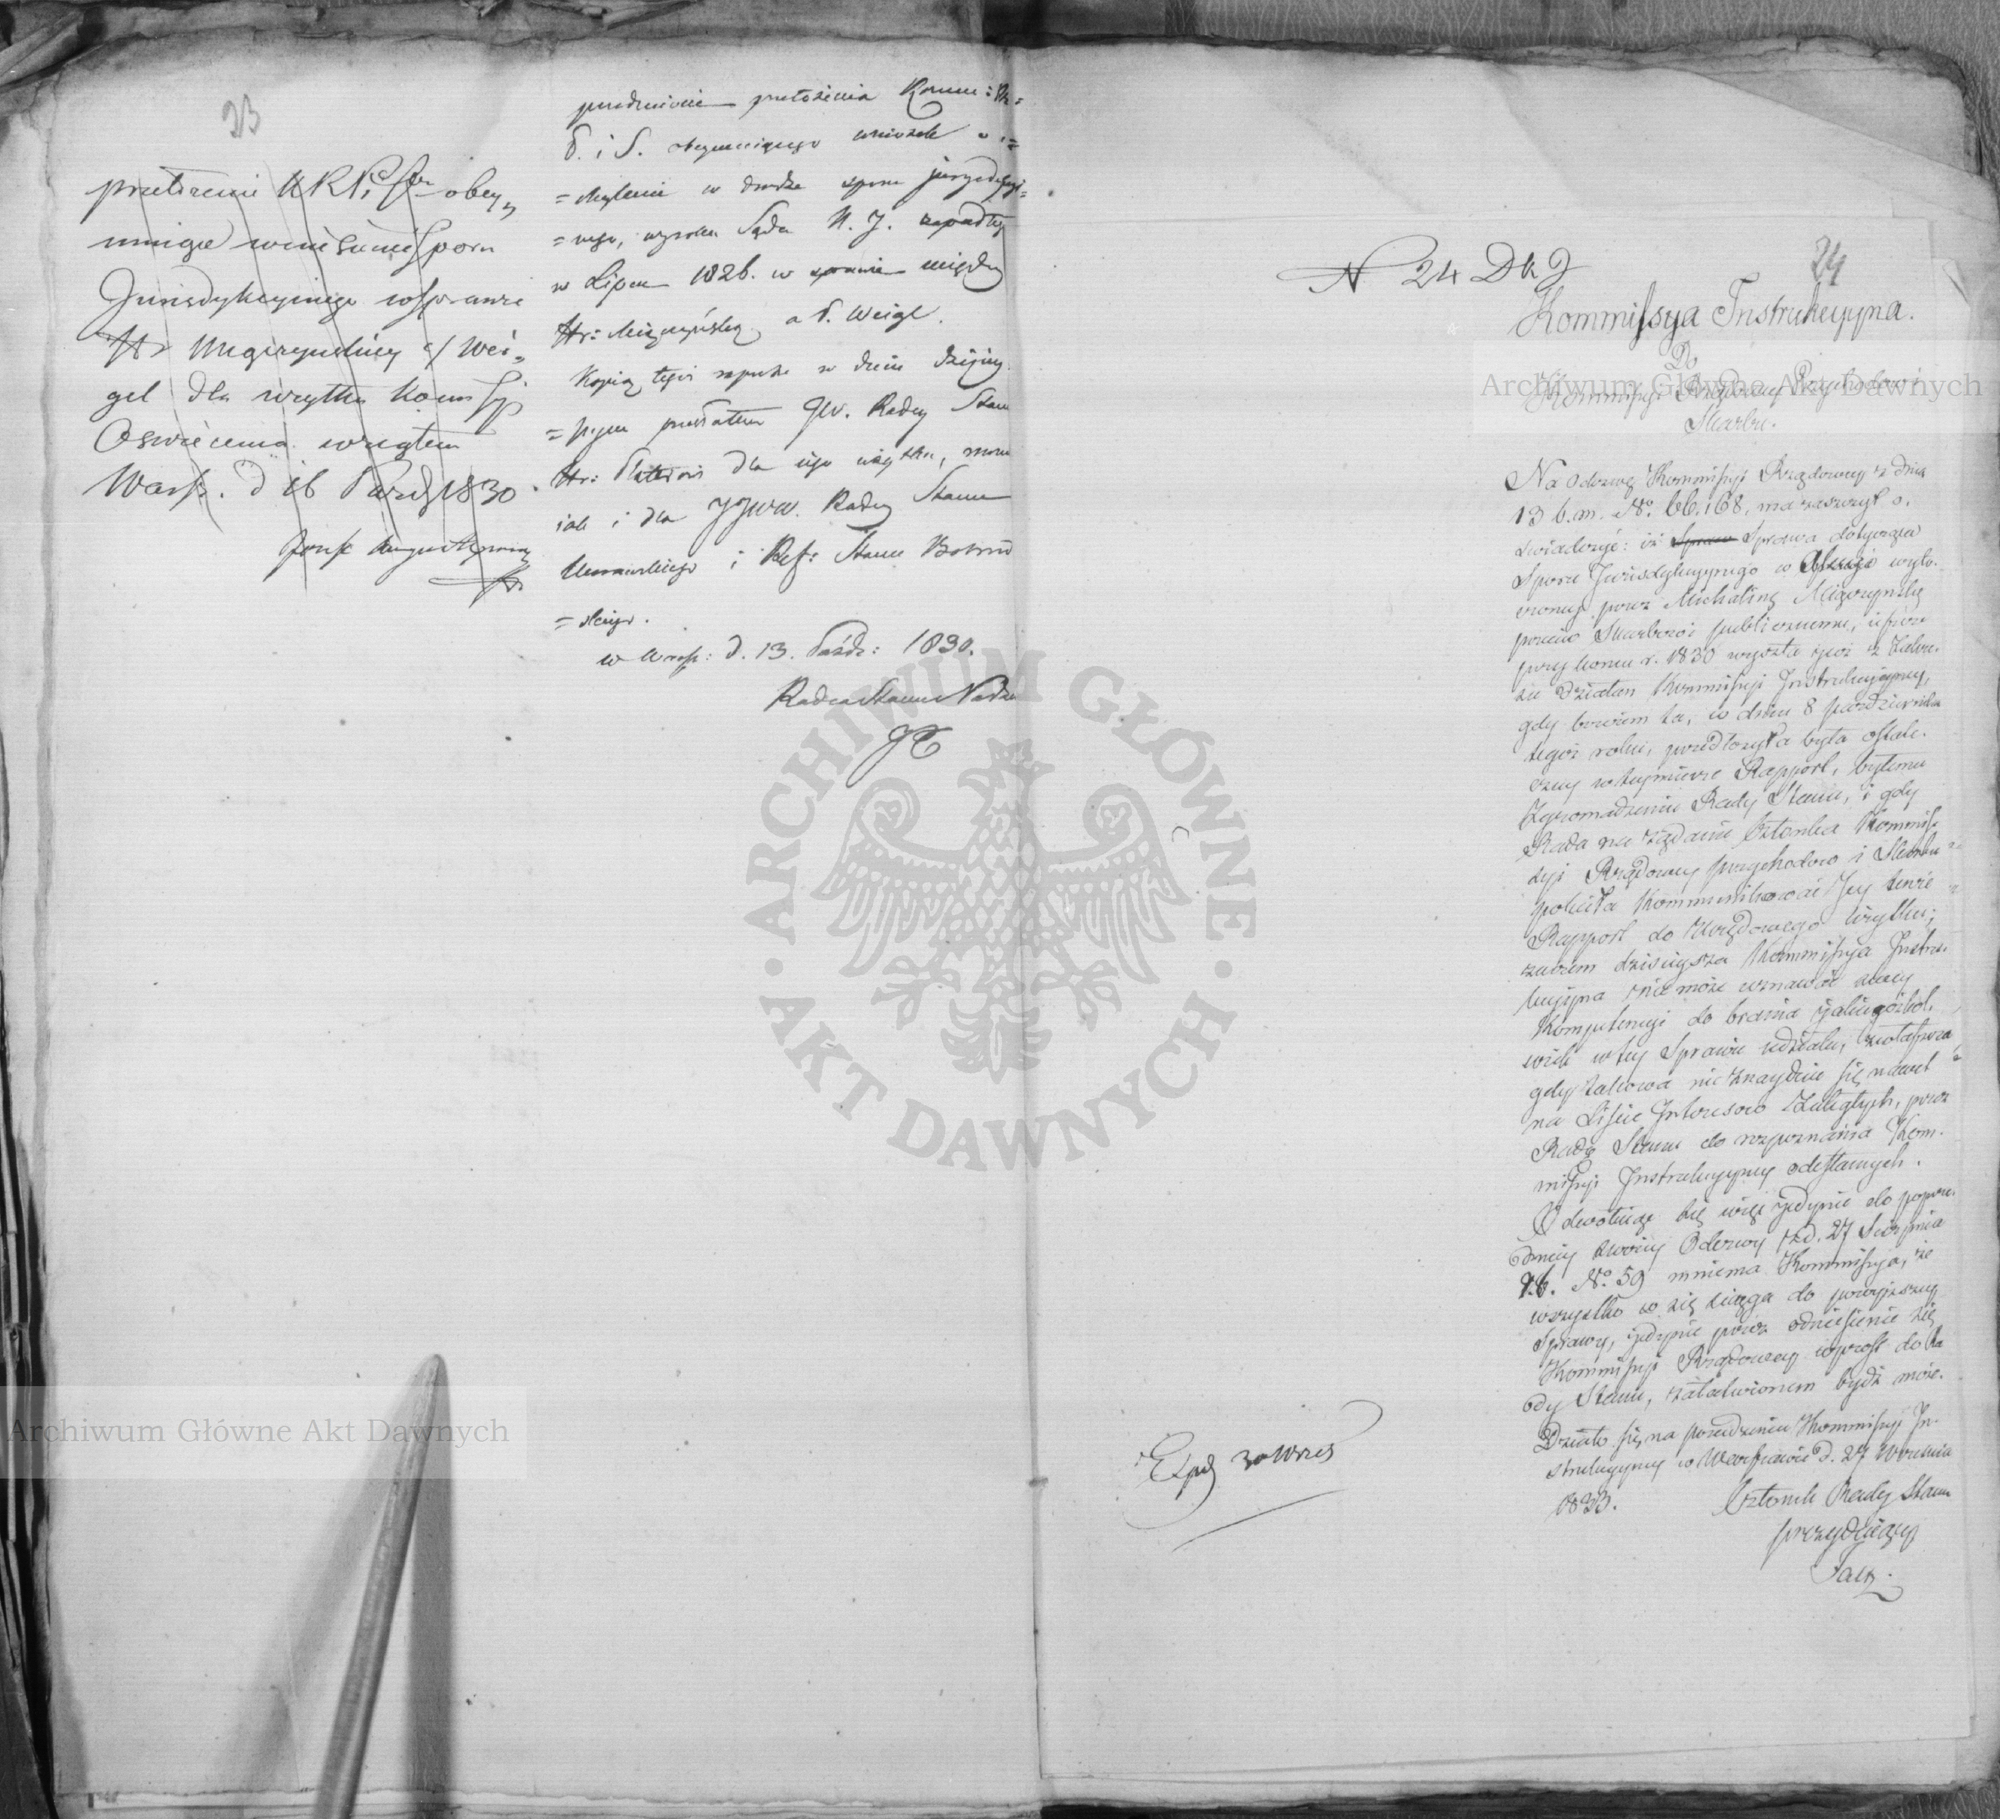 23
przełożenie KRPiSbu obey„
muiące wniesienie Sporu
Jurisdykcyinego w Sprawie
Hr Miączyńskiey c/ Wei„
gel dla użytku Kommissyi
Oświecenia wziąłem
Warsz. d 16 Paźdz 1830
przedmiocie przełożenia Komm: Rz=
P. i S. obeymuiącego wniosek o u=
=chylenie w drodze sporu jurysdykcyi=
=nego, wyroku Sądu N. J. zapadłego
w Lipcu 1826. w sprawie między
Hr: Miączyńską a P. Weigl.
Kopię tegoż raportu w dniu dzisiey
=szym przesłałem JW. Radcy Stanu
Hr: Platerowi dla iego użytku, niem
iak i dla JJWW. Radcy Stanu
i Ref: Stanu
=skiego.
w Warsz: d. 13. Paźdz: 1830.
Radca Stanu Nadzw
N 24 DkJ
24
Kommissya Instrukcyyna.
Do
Kommissyi Rządowey Przychodów i
Skarbu.
Na Odezwę Kommissyi Rządowey z dnia
13 b.m. No. 66,168, ma zaszczyt o„
świadczyć: iż Sprawa Sprawa dotycząca
Sporu Jurisdykcyynego w Appellacyi wyto„
czonej przez Michalinę Miączyńską
przeciw Skarbowi publicznemu, ieszcze
przy końcu r. 1830 wyszła już z Zakre„
su Działań Kommissyi Instrukcyyney,
gdy bowiem ta, w dniu 8 Października
tegoż roku, przedłożyła była ostate„
czny w tey mierze Rapport, byłemu
Zgromadzeniu Rady Stanu, i gdy
Rada na żądanie Członka Kommis„
syi Rządowey Przychodów i Skarbu
poleciła Kommunikować Jey tenże
Rapport do Urzędowego użytku;
zaczem dzisieysza Kommissya Instru„
kcyyna nie może uznawać swey
Kompetencyi do brania jakiegożkol„
wiek w tey Sprawie udziału, zwłaszcza
gdy takowa nie znayduie się nawet
na Liście Interessów Zaległych, przez
Radę Stanu do rozpoznania Kom„
missyi Instrukcyyney odesłanych.
Odwołuiąc się więc jedynie do poprze„
dniey swoiey Odezwy z d. 27 Sierpnia
r.b. No. 59 mniema Kommissya, że
wszystko co się ściąga do powyższey
Sprawy, jedynie przez odniesienie się
Kommissyi Rządowey wprost do Ra
dy Stanu, załatwionem bydź może.
Działo się na posiedzeniu Kommissyi In„
strukcyyney w Warszawie d. 27 Września
1833.
Członek Rady Stanu
prezyduiący
Exped 30 Wrześ
Archiwum Główne Akt Dawnych
Archiwum Główne Akt Dawnych
ARCHIWUM GŁÓWNE · AKT DAWNYCH ·